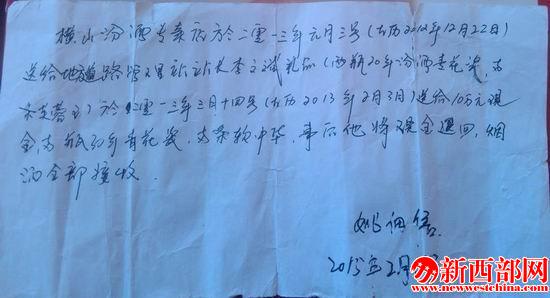 横山汾酒专卖店于二零一三年元月三号(农历2012年12月22日)
送给地道路管理站站长李文斌礼品(两瓶20年汾酒青花瓷,两
条芙蓉王)于二零一三年三月十四号(农历2013年2月3日)送给10万元现
金,两瓶30年青花瓷,两条软中华,事后他将现金退回,烟
酒全部接收.
姚佃信
2015年2月
新西部网
www.newestchina.com